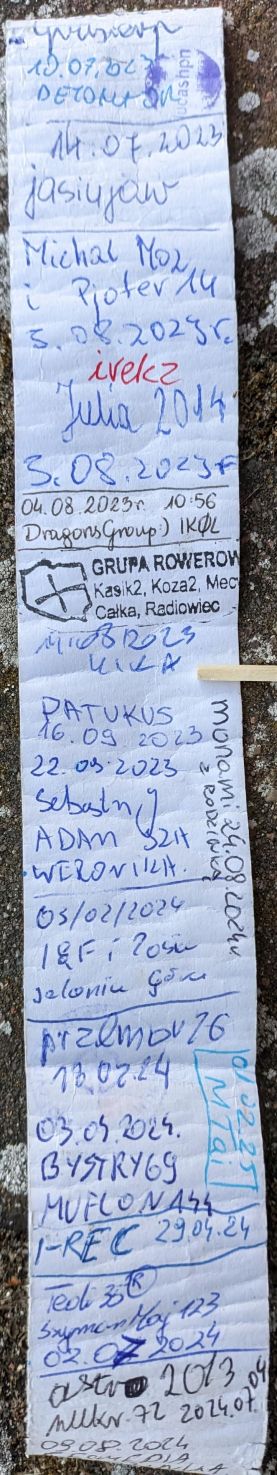 10.07.2023
DETONATOR
14.07.2023
jasiujaw
Michal Moz
i Pjoter 14
5.08.2023r.
irekz
Julia 2014
5.08.2023r
04.08.2023r. 10:56
DragonsGroup:) IKØL
GRUPA ROWEROW
Kasik2, Koza2, Mec
Całka, Radiowiec
KIKA
PATUKUS
16.09 2023
22.09.2023
ADAM SZA
WERONIKA.
monami 24.08.2024r
z rodzinką
03/02/2024
Jelenia Góra
przemor26
18.02.24
01.02.25
MTai
03.05.2024.
BYSTRY69
MUFLONA44
I-REC 29.04.24
Szymon Maj 123
02.07 2024
astro 2013
2024.07.04
09.08.2024